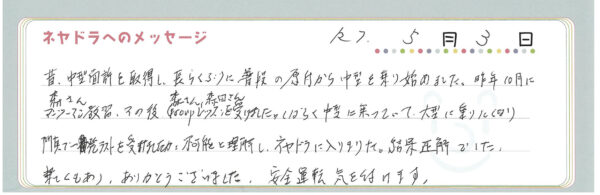 ネヤドラへのメッセージ R7. 5月3日
昔、中型免許を取得し、長らくぶりに普段の原付から中型を乗り始めました。昨年10月に
森さん 森さん、森田さん
マンツーマン教習、その後Groupレッスンを受けました。しばらく中型に乗っていて、大型に乗りたくなり
門真で一発テストを受けましたが不可能と理解し、ネヤドラに入りました。結果正解でした。
楽しくもあり、ありがとうございました。安全運転気を付けます。